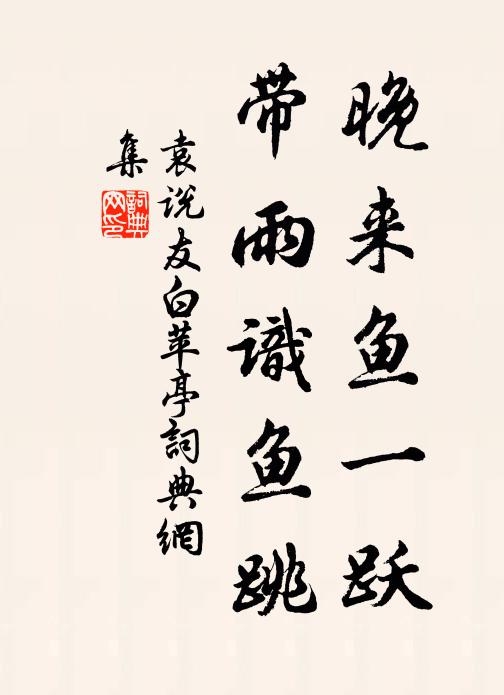 晚来鱼一跃
带雨識鱼跳
袁说友白苹亭詞典網
集
詞典網印